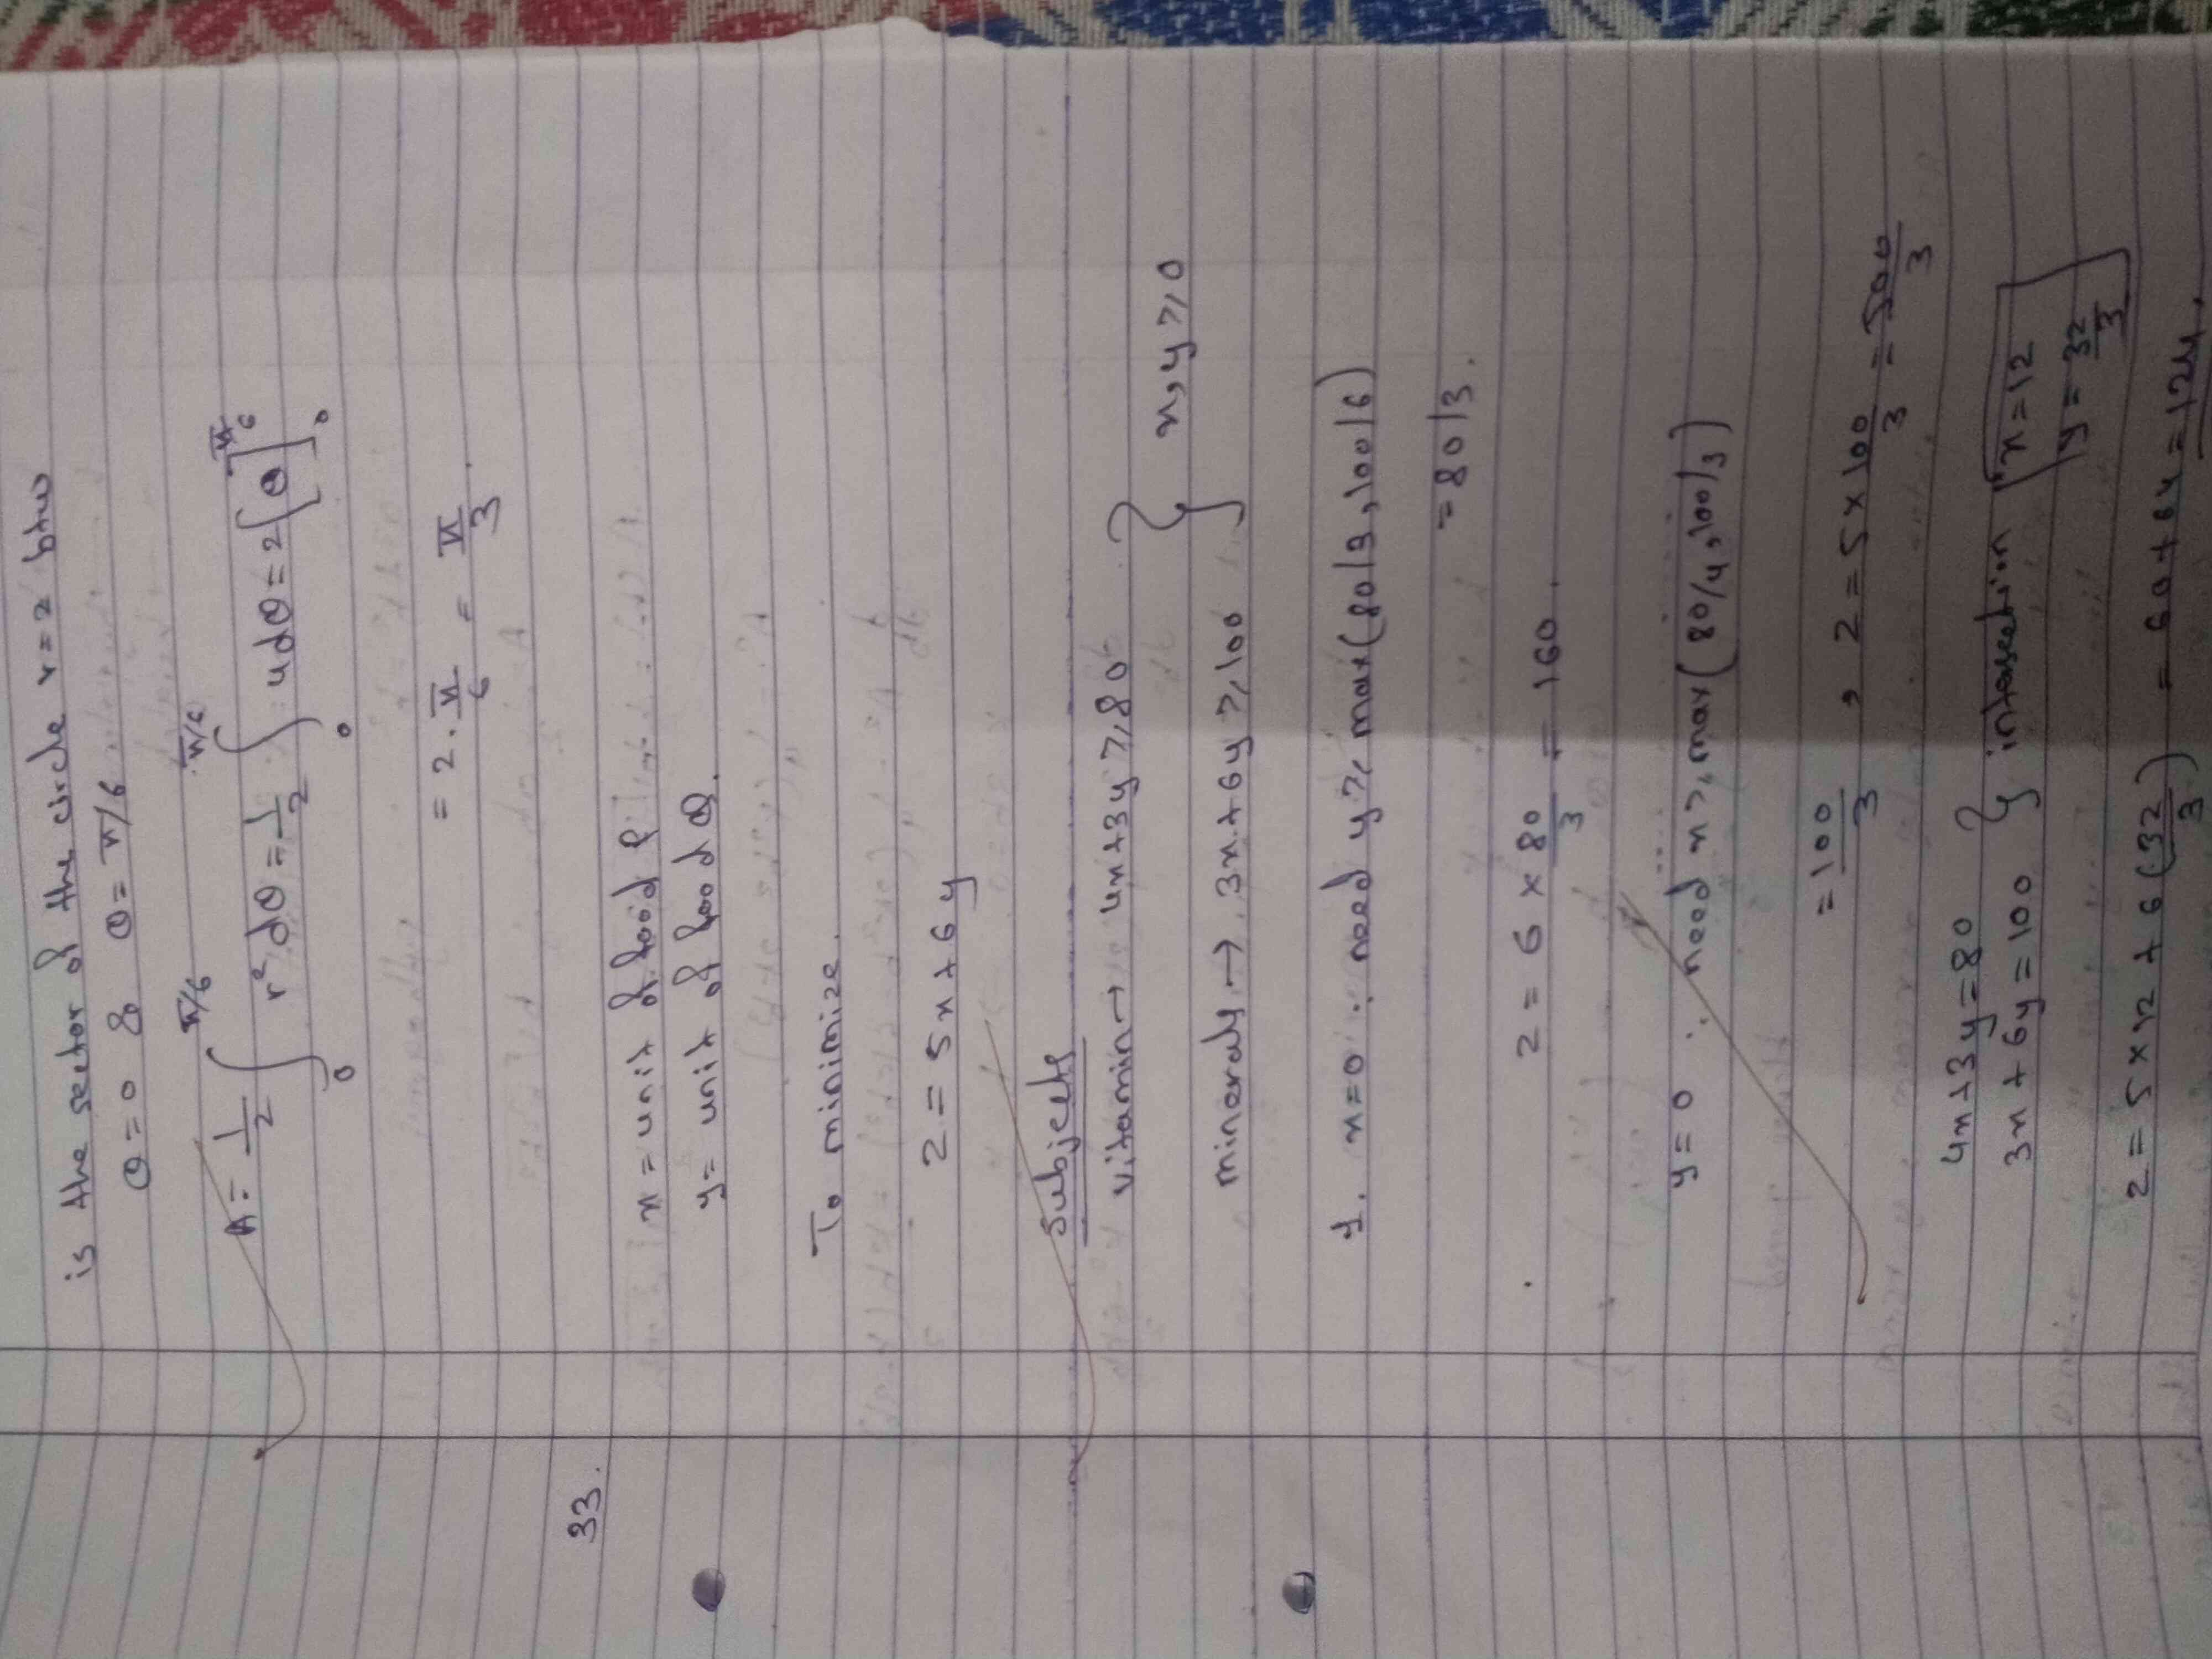 is the sector of the circle r=2 btw
θ=0 & θ=π/6
A = 1/2 ∫₀^π/6 r² dθ = 1/2 ∫₀^π/6 4dθ = 2[θ]₀^π/6
= 2 · π/6 = π/3 .
33.
x = unit of food P
y = unit of food Q.
To minimize
Z = 5x + 6y
Subjects
vitamin → 4x+3y ≥ 80
minerals → 3x+6y ≥ 100 } x,y ≥ 0
1. x=0 : need y ≥ max(80/3, 100/6)
= 80/3.
Z = 6 × 80/3 = 160.
y=0 : need x ≥ max(80/4, 100/3)
= 100/3 , Z = 5 × 100/3 = 500/3
4x+3y=80
3x+6y=100 } intersection x=12 y=32/3
Z = 5×12 + 6(32/3) = 60+64 = 124.